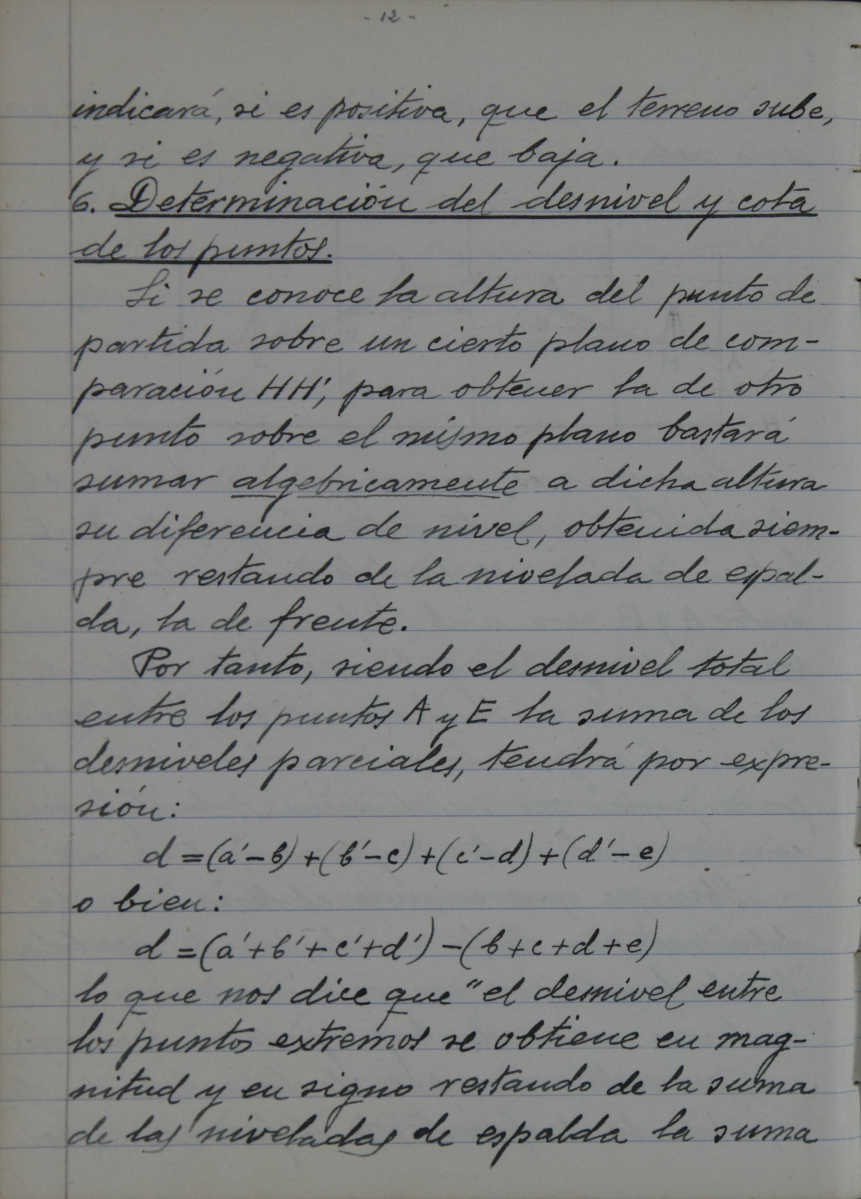 - 12 -
indicará, si es positiva, que el terreno sube,
y si es negativa, que baja.
6. Determinación del desnivel y cota
de los puntos.
Si se conoce la altura del punto de
partida sobre un cierto plano de com-
paración HH', para obtener la de otro
punto sobre el mismo plano bastará
sumar algebricamente a dicha altura
su diferencia de nivel, obtenida siem-
pre restando de la nivelada de espal-
da, la de frente.
Por tanto, siendo el desnivel total
entre los puntos A y E la suma de los
desniveles parciales, tendrá por expre-
sión:
d = (a' - b) + (b' - c) + (c' - d) + (d' - e)
o bien:
d = (a' + b' + c' + d') - (b + c + d + e)
lo que nos dice que "el desnivel entre
los puntos extremos se obtiene en mag-
nitud y en signo restando de la suma
de las niveladas de espalda la suma